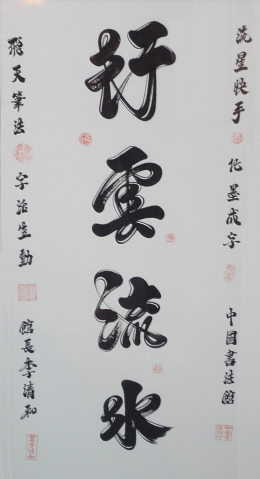 流星快手 化墨成字 中國書法館
行雲流水
飛天筆法 字活生動 館長李清和